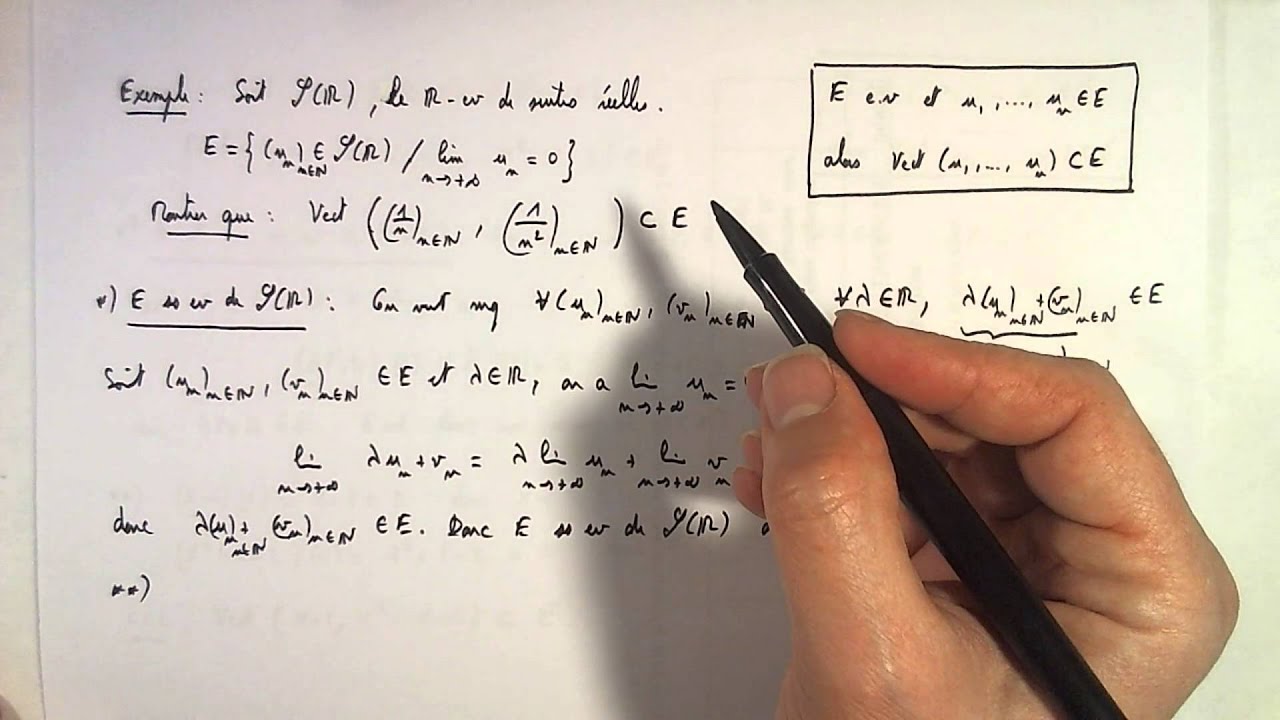 Exemple : Soit 𝒮(ℝ), le ℝ-ev de suites réelles.
E = { (u_n)_{n∈ℕ} ∈ 𝒮(ℝ) / lim_{n→+∞} u_n = 0 }
Montrer que : Vect ( (1/n)_{n∈ℕ}, (1/n²)_{n∈ℕ} ) ⊂ E
E e.v et u_1, ..., u_n ∈ E
alors Vect (u_1, ..., u_n) ⊂ E
*) E ss ev de 𝒮(ℝ) : On veut mq ∀ (u_n)_{n∈ℕ}, (v_n)_{n∈ℕ} ∀ λ ∈ ℝ, λ(u_n)_{n∈ℕ} + (v_n)_{n∈ℕ} ∈ E
Soit (u_n)_{n∈ℕ}, (v_n)_{n∈ℕ} ∈ E et λ ∈ ℝ, on a lim_{n→+∞} u_n =
lim_{n→+∞} λu_n + v_n = λ lim_{n→+∞} u_n + lim_{n→+∞} v_n
donc λ(u_n)_{n∈ℕ} + (v_n)_{n∈ℕ} ∈ E. Donc E ss ev de 𝒮(ℝ)
**)